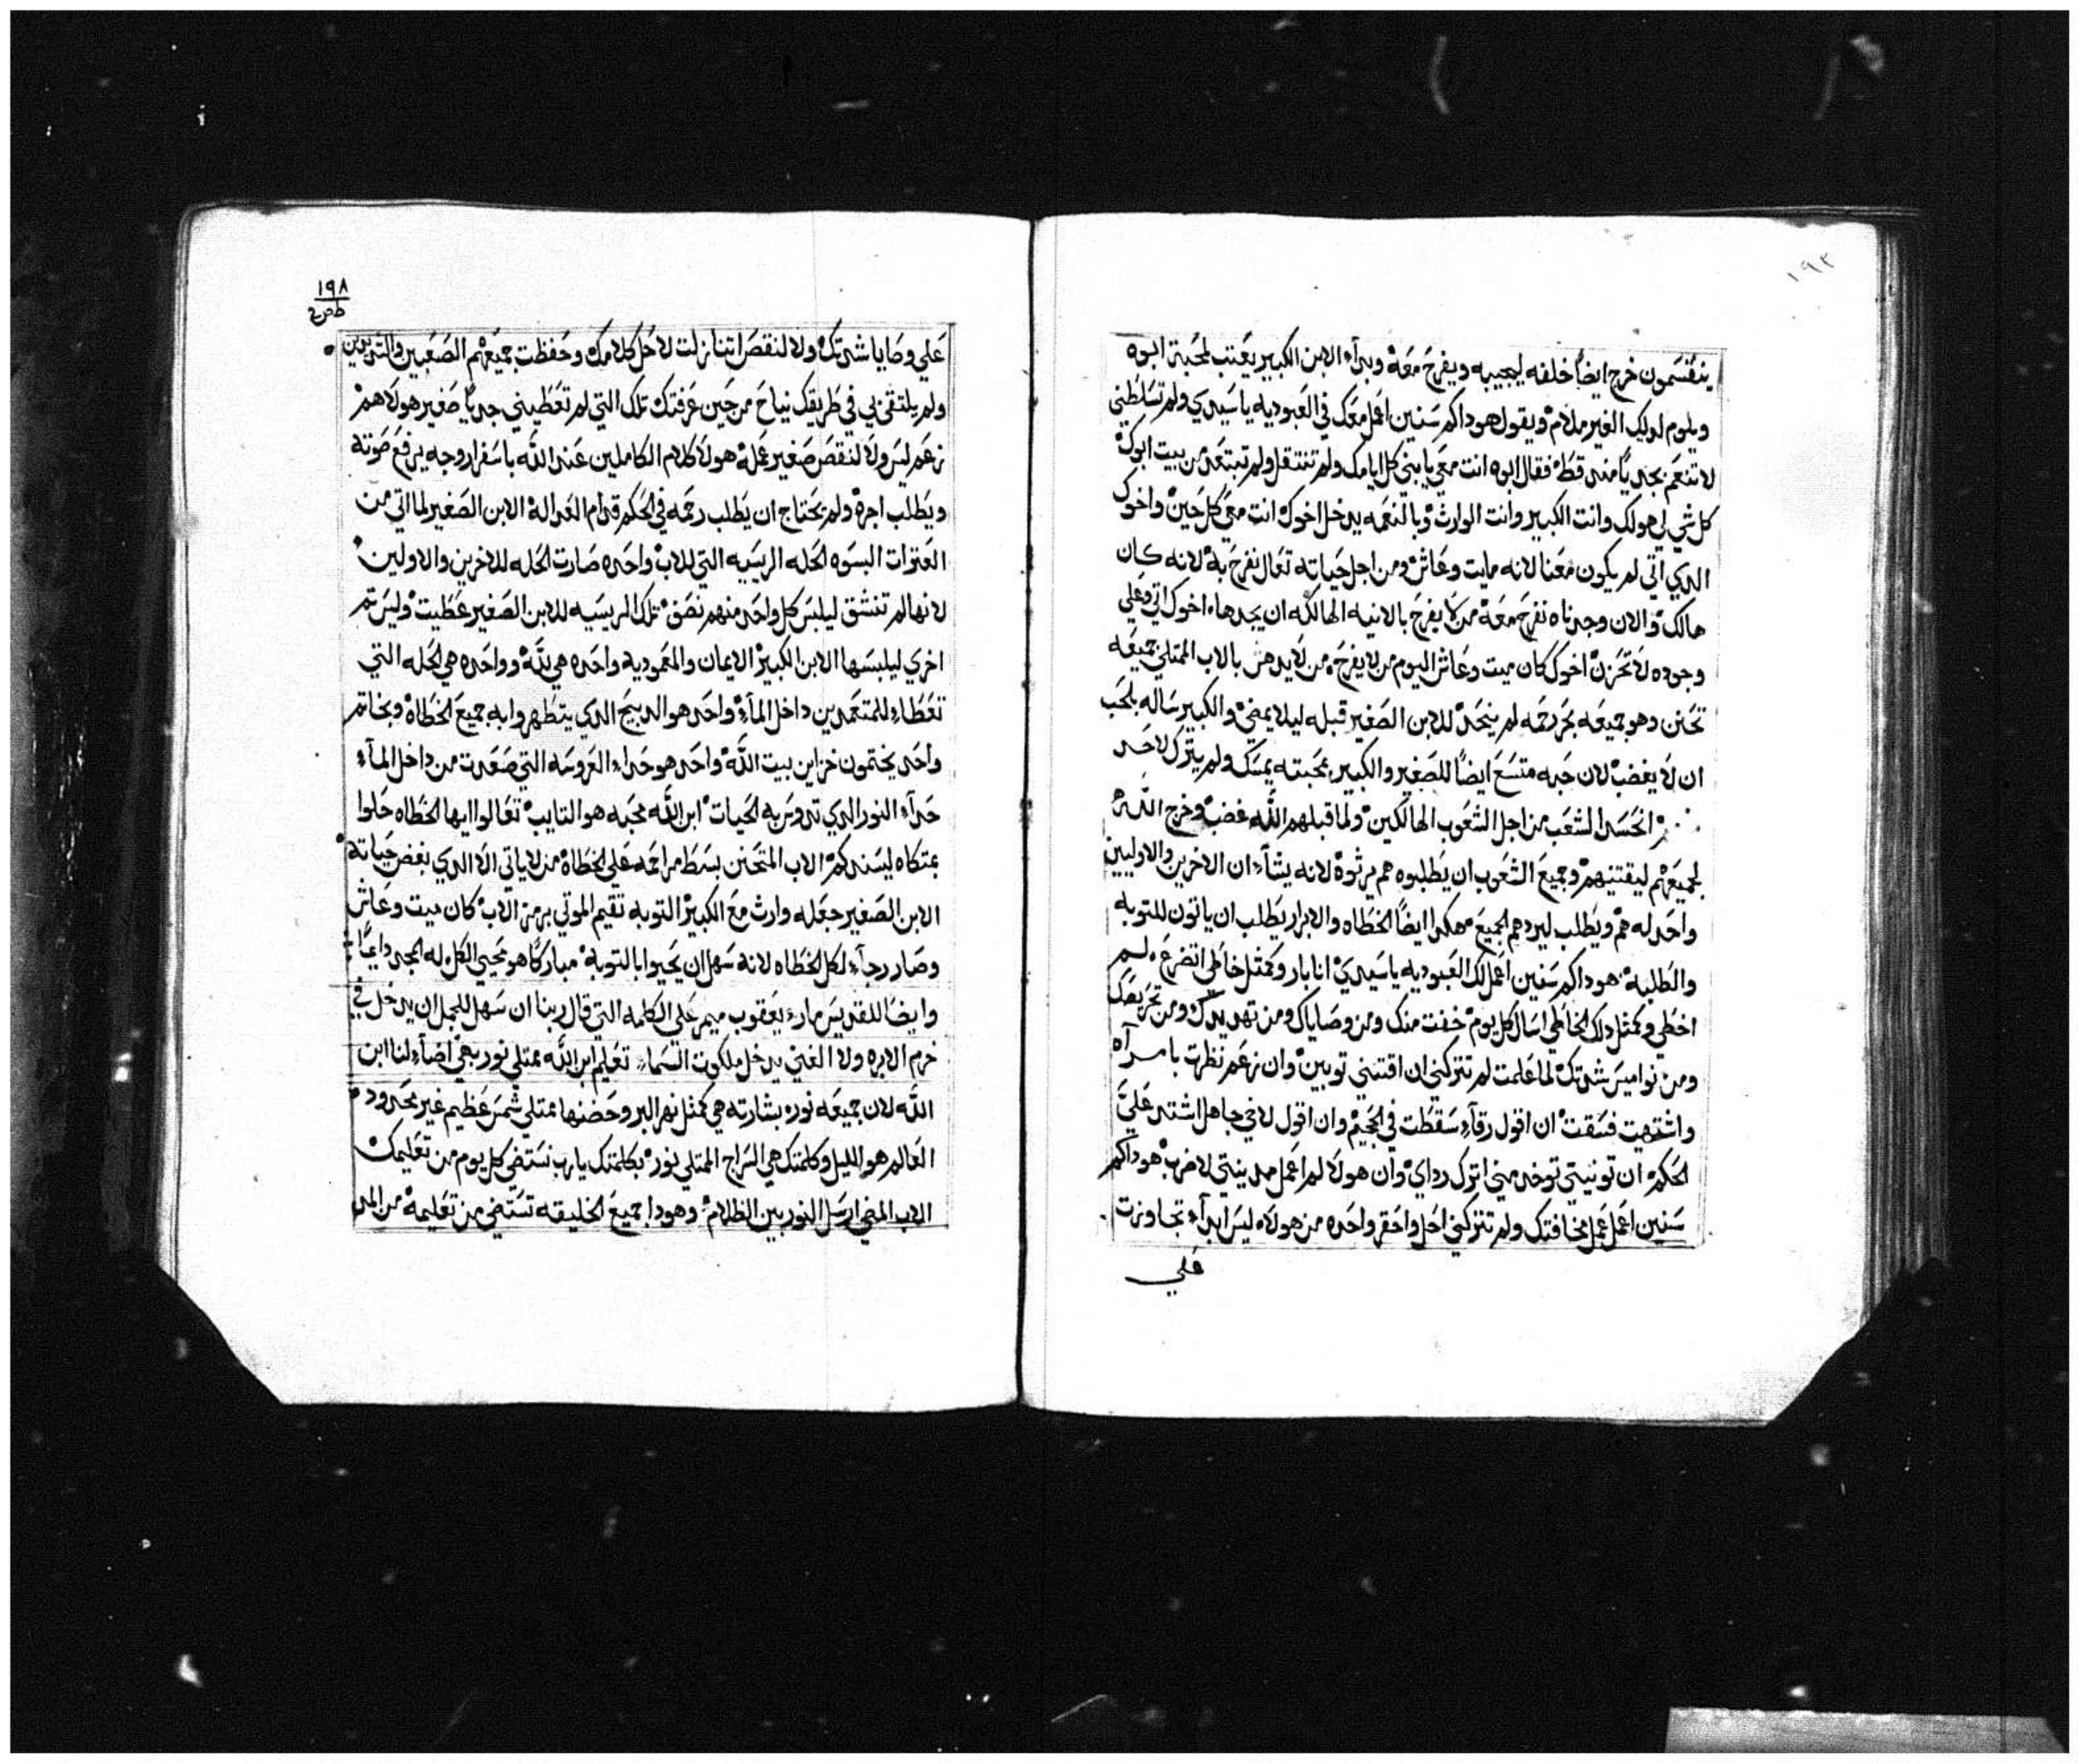 ١٩٣
ينقسمون خرج ايضاً خلفه ليجيبه ويفرح معه وبدآ الابن الكبير يعتب لمحبة ابوه
ويلوم لدلك الغير ملام ويقول هودا كم سنين اعمل معك في العبوديه يا سيدي ولم تسلطني
لاتنعم بجدياً مند قط فقال ابوه انت معي يا بني كل ايامك ولم تنتقل ولم تبتعد من بيت ابوك
كل شي لي هو لك وانت الكبير وانت الوارث وبالنعمه يدخل اخوك انت معي كل حين واخوك
الدي اتي لم يكون معنا لانه مايت وعاش ومن اجل حياته تعال نفرح به لانه كان
هالك والان وجدناه نفرح معه من لا يفرح بالانيه الهالكه ان يجدها، اخوك اتي وعلي
وجوده لا تحزن اخوك كان ميت وعاش اليوم من لا يفرح، من لا يدهش بالاب الممتلي جميعه
تحنن وهو جميعه بحر رحمه لم للابن الصغير قبله ليلا يمضي والكبير ساله بالحب
ان لا يغضب لان حبه متسع ايضاً للصغير والكبير بمحبته يمسك ولم يترك لاحد
الحسد الشعب من اجل الشعوب الهالكين ولما قبلهم الله غضب وخرج الله
لجميعهم ليقتنيهم وجميع الشعوب ان يطلبوه هم يرثوه لانه يشآء ان الاخرين والاوليين
واحد له هم ويطلب ليردهم الجميع هكدا ايضاً الخطاه والابرار يطلب ان ياتون للتوبه
والطلبه هودا كم سنين اعمل لك العبوديه يا سيدي انا بار وكمثل خاطي اتضرع، لم
اخطي وكمثل دلك الخاطي اسال كل يوم خفت منك ومن وصاياك ومن تهديدك ومن تحريصك
ومن نواميس شدتك لما علمت لم تتركني ان اقتنيني توبين وان زعم نظرت بامرآه
واشتهيت فسقت ان اقول رقآء سقطت في الجحيم وان اقول لاخي جاهل اشتد علي
الحكم ان توني توخد مني اترك رداي وان هولا لم اعمل مدينتي لاخرب هودا كم
سنين اعمل عمل مخافتك ولم تتركني احل واحقر واحده من هولاء ليس ابدآ تجاوزت
علي
١٩٨
علي وصايا شدتك ولا لنقص اتنازلت لاحل كلامك وحفظت جميعهم الصعبين والشديدين
ولم يلتقي لي في طريقك نياح من حين عرفتك تلك التي لم تعطيني جدياً صغير هولا هم
زعم ليس ولا لنقص صغير عمله هولا كلام الكاملين عند الله باسفار وجه يرفع صوته
ويطلب اجره ولم يحتاج ان يطلب رحمه في الحكم قدام العداله الابن الصغير لما اتي من
العترات البسوه الحله الريسيه التي للاب واحده صارت الحله للاخرين والاولين
لانها لم تنشق ليلبس كل واحد منهم نصف تلك الريسيه للابن الصغير عطيت وليس تم
اخري ليلبسها الابن الكبير الايمان والمعموديه واحده هي لله وواحده هي الحله التي
تعطاء للمتعمدين داخل المآء واحد هو الدبيح الدي يتطهروا به جميع الخطاه وبخاتم
واحد يختمون خزاين بيت الله واحد هو حداء العروسه التي صعدت من داخل المآء
حدآء النور الدي تدوس به الحيات ابن الله محبه هو التايب تعالوا ايها الخطاه حلوا
بمتكاه ليسندكم الاب المتحنن بسط مراحمه علي الخطاه من لا ياتي الا الدي بغض حياته
الابن الصغير جعله وارث مع الكبير التوبه تقيم الموتي من الاب كان ميت وعاش
وصار رجآء لكل الخطاه لانه سهل ان يحيوا بالتوبه مباركاً هو محيي الكل له المجد دايماً
وايضاً للقديس مار يعقوب ميمر علي الكلمه التي قال ربنا ان سهل للجمل ان يدخل في
خرم الابره ولا الغني يدخل ملكوت السماء تعليم ابن الله ممتلي نور بهي اضآء لنا ابن
الله لان جميعه نور بشارته هي كمثل نهر البر وحضنها ممتلي شمس عظيم غير محدود
العالم هو الليل وكلمتك هي السراج الممتلي نور بكلمتك يا رب نستضي كل يوم من تعليمك
الاب المضي ارسل النور بين الظلام وهودا جميع الخليقه تستضي من تعليمه من